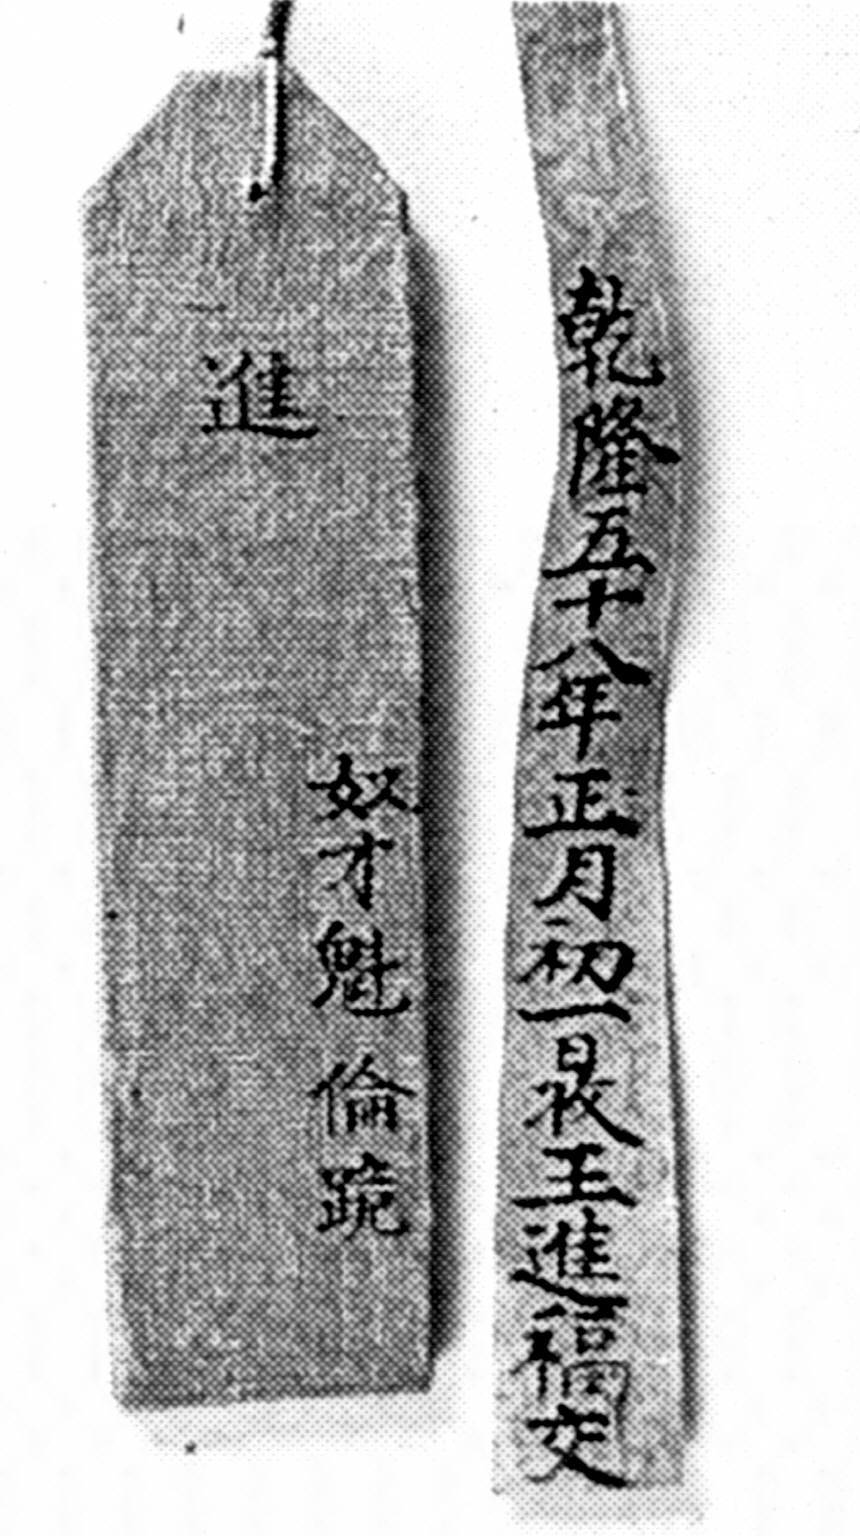 乾隆五十八年正月初一日收王進福交
奴才魁倫跪
進